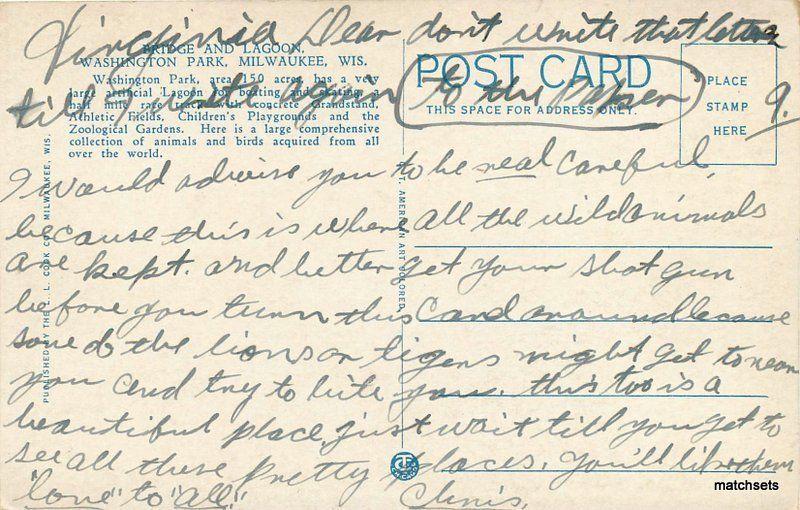 Virginia Dear don't write that letter
till I write again to the
9.
BRIDGE AND LAGOON,
WASHINGTON PARK, MILWAUKEE, WIS.
Washington Park, area 150 acres, has a very
large artificial Lagoon for boating and skating, a
half mile race track with concrete Grandstand,
Athletic Fields, Children's Playgrounds and the
Zoological Gardens. Here is a large comprehensive
collection of animals and birds acquired from all
over the world.
POST CARD
THIS SPACE FOR ADDRESS ONLY.
PLACE
STAMP
HERE
I would advise you to be real careful,
because this is where all the wild animals
are kept. and better get your shot gun
before you turn this card around because
some do the lions or tigers might get to near
you and try to bite you. this too is a
beautiful place, just wait till you get to
see all these pretty places, you'll like them
"love" to "all" Chris.
PUBLISHED BY THE E. L. COOK CO., MILWAUKEE, WIS.
C. T. AMERICAN ART COLORED
CT
CHICAGO
matchsets